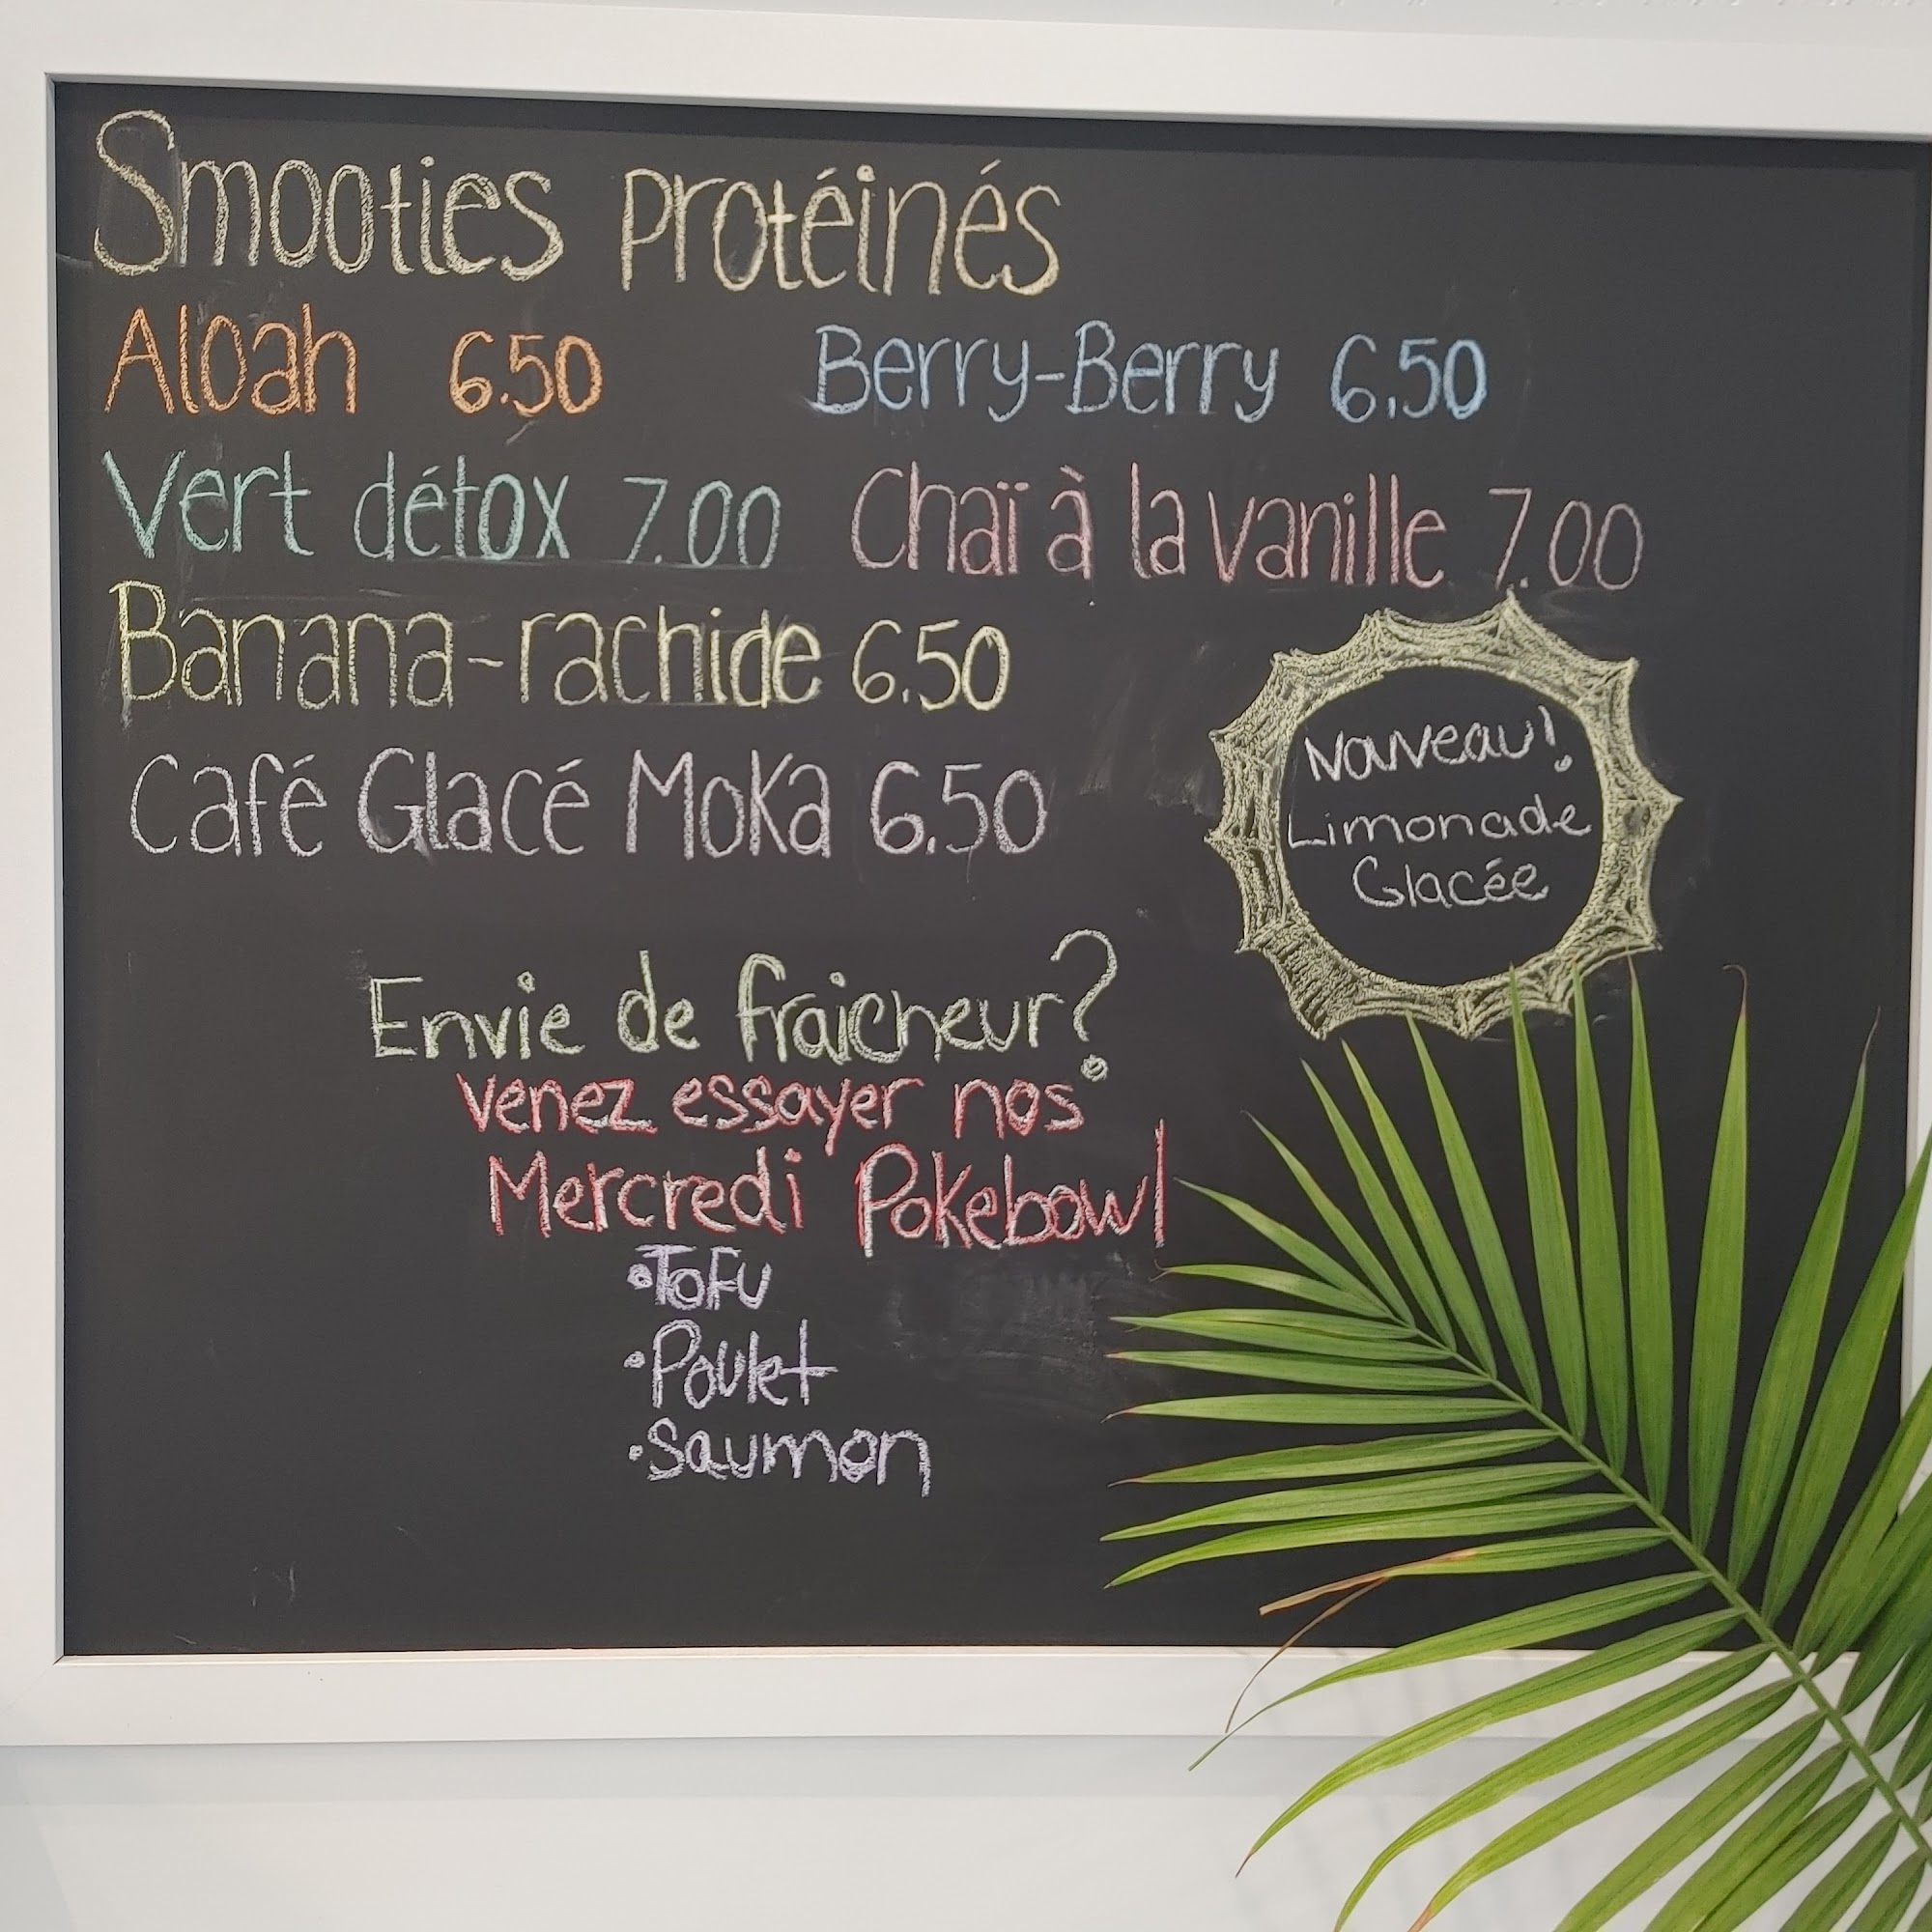 Smooties protéinés
Aloah 6.50 Berry-Berry 6.50
Vert détox 7.00 Chaï à la vanille 7.00
Banana-rachide 6.50
Café Glacé Moka 6.50
Nouveau!
Limonade
Glacée
Envie de fraicheur?
venez essayer nos
Mercredi Pokebowl
•Tofu
•Poulet
•Saumon